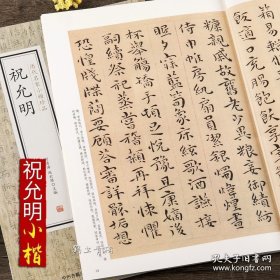 飯適口充腸飽飫烹宰飢厭糟
糠親戚故舊老少異糧妾御績紡
侍巾帷房紈扇員潔銀燭煒煌晝
眠夕寐藍筍象床絃歌酒讌接
杯舉觴矯手頓足悅豫且康嫡後
嗣續祭祀蒸嘗稽顙再拜悚懼
恐惶牋牒簡要顧答審詳骸垢想
祝允明
祝允明小楷
孔夫子旧书网